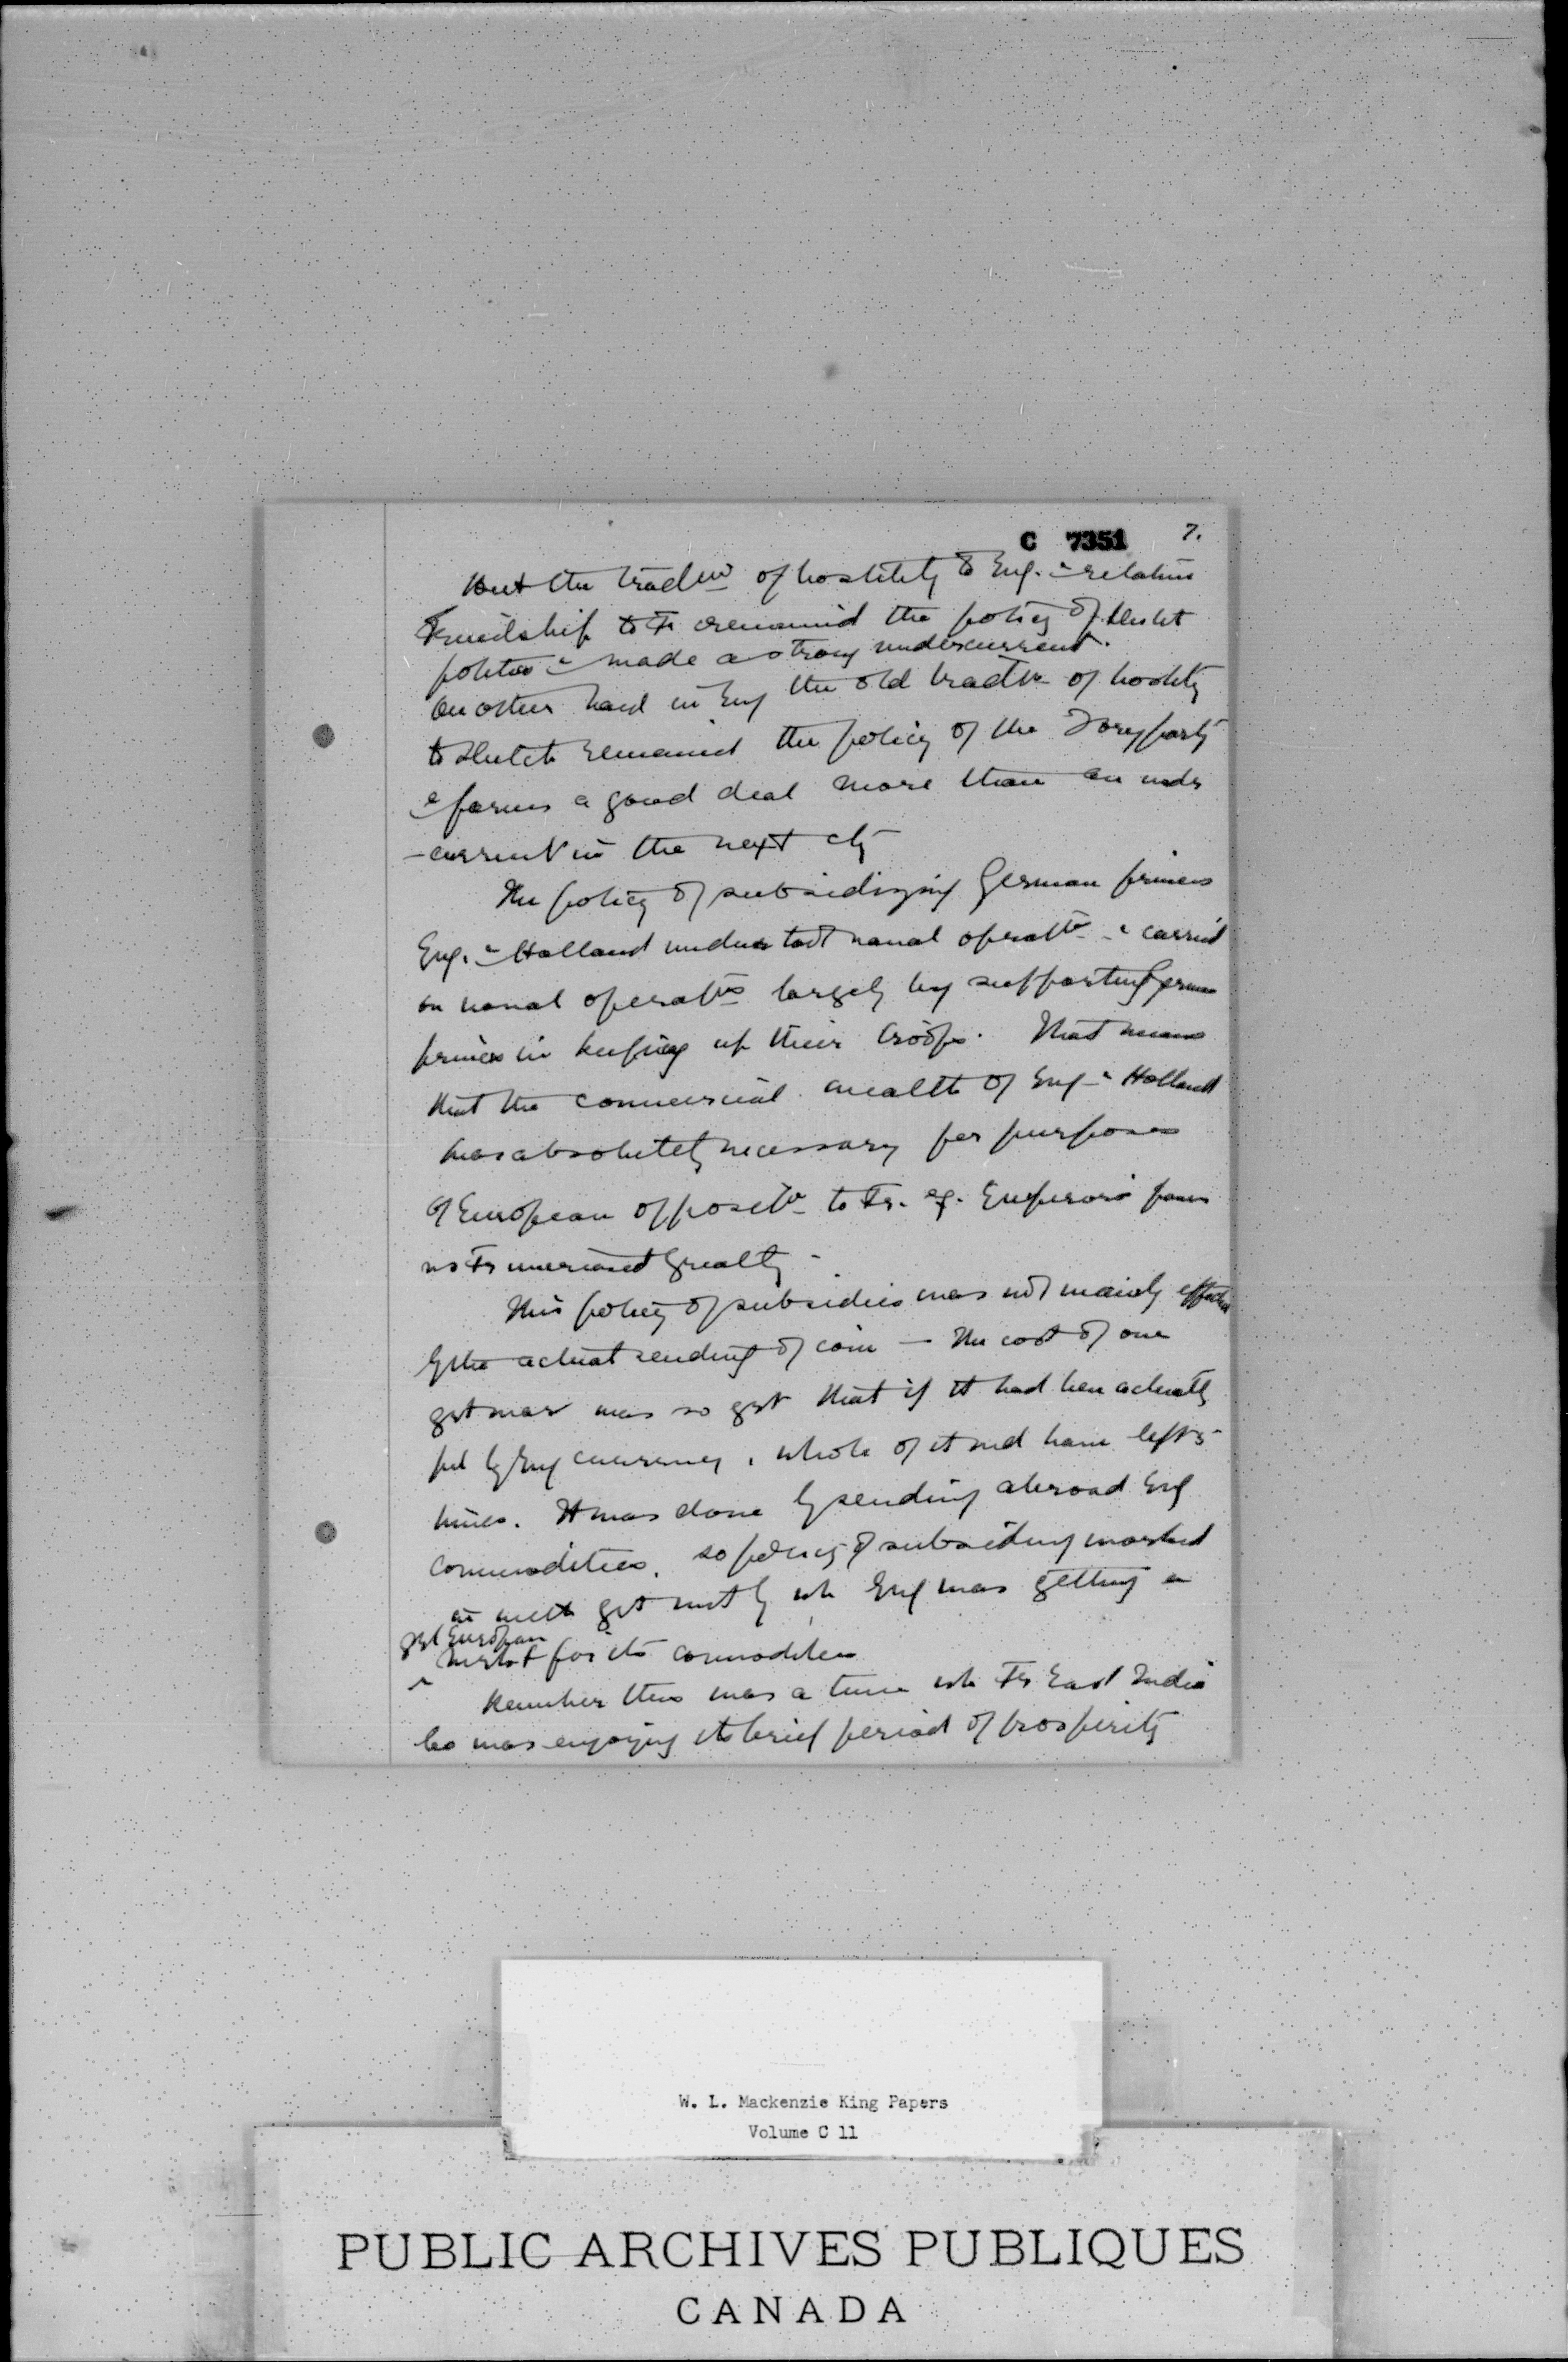 C 7351 7.
But the trad'ns of hostility to Eng. & relations
Friendship to Fr remained the policy of Dutch
& made a strong undercurrent.
On other hand in Eng the old trad'n of hostility
to Dutch remained the policy of the Tory party
& forms a good deal more than an under
-current in the next cty
The policy of subsidizing German princes
Eng. & Holland naval operat'ns & carried
on naval operat'ns largely by supporting German
princes in keeping up their troops. That means
that the commercial wealth of Eng & Holland
was absolutely necessary for purposes
of European opposit'n to Fr. eg. Emperor's
Fr increased greatly
This policy of subsidies was not mainly effected
by the actual sending of coin — The cost of one
grt war was so grt that if it had been actually
pd by Eng currency, whole of it wd have left 3
times. It was done by sending abroad Eng
commodities. so policy of subsidizing worked
as well grt wh Eng was getting a
grt European
market for its commodities
Remember this was a time wh Fr East India
Co was enjoying its brief period of prosperity
W. L. Mackenzie King Papers
Volume C 11
PUBLIC ARCHIVES PUBLIQUES
CANADA